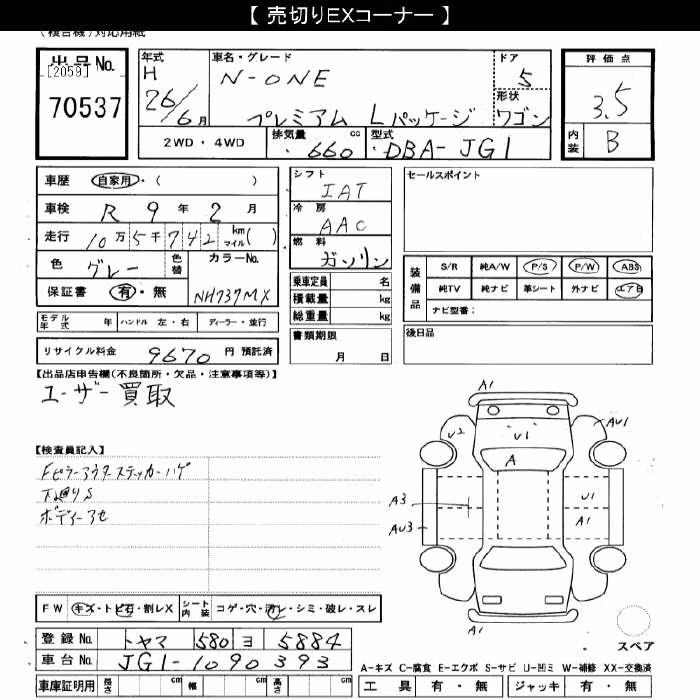 【 売切りEXコーナー 】
(複合機)対応用紙
出品No.
[2059]
70537
年式
H
26/6月
車名・グレード
N-ONE
プレミアム Lパッケージ
ドア
5
形状
ワゴン
評価点
3.5
内装
B
2WD・4WD
排気量
660
cc
型式
DBA-JG1
車歴
自家用・( )
車検
R 9年 2月
走行
10万5千742
km
マイル
( )
色
グレー
色替
カラーNo.
NH737MX
保証書
有・無
シフト
IAT
冷房
AAC
燃料
ガソリン
乗車定員 名
積載量 kg
総重量 kg
セールスポイント
装備品
S/R 純A/W P/S P/W ABS
純TV 純ナビ 革シート 外ナビ エアB
ナビ型番:
モデル年式 年 ハンドル 左・右 ディーラー・並行
リサイクル料金 9670 円 預託済
書類期限
月 日
後日品
【出品店申告欄(不良箇所・欠品・注意事項等)】
ユーザー買取
【検査員記入】
Fピラーアウターステッカーハゲ
下廻りS
ボディーアセ
A1
U2
U1
AU1
A
A3
AU3
U1
A1
A1
スペア
FW キズ・トビ石・割レX
シート内装 コゲ・穴・汚レ・シミ・破レ・スレ
登録No. トヤマ 580 ヨ 5884
車台No. JG1-1090393
車庫証明用 長さ cm 幅 cm 高さ cm
A-キズ C-腐食 E-エクボ S-サビ U-凹ミ W-補修 XX-交換済
工具 有・無 ジャッキ 有・無